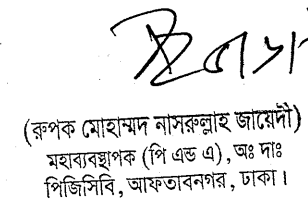 (রুপক মোহাম্মদ নাসরুল্লাহ জায়েদী)
মহাব্যবস্থাপক (পি এন্ড এ), অঃ দাঃ
পিজিসিবি, আফতাবনগর, ঢাকা।